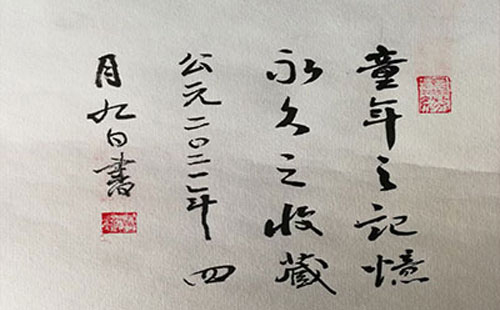 童年之記憶
永久之收藏
公元二〇二二年四
月九日書